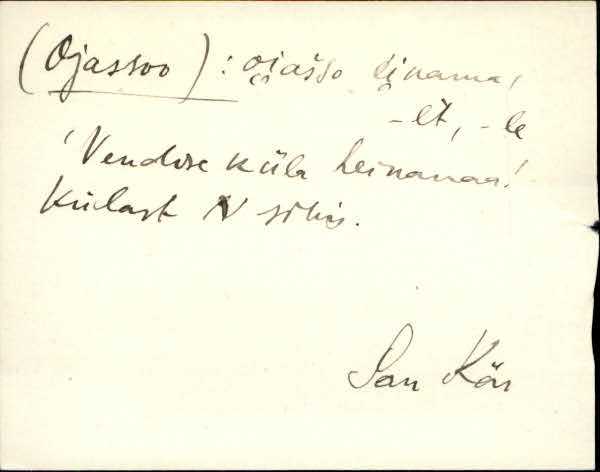 (Ojassoo) : oi̯aśśo ei̯nama,
-lt, -le
'Vendise küla heinamaa.'
Külast N sihis.
San Kär